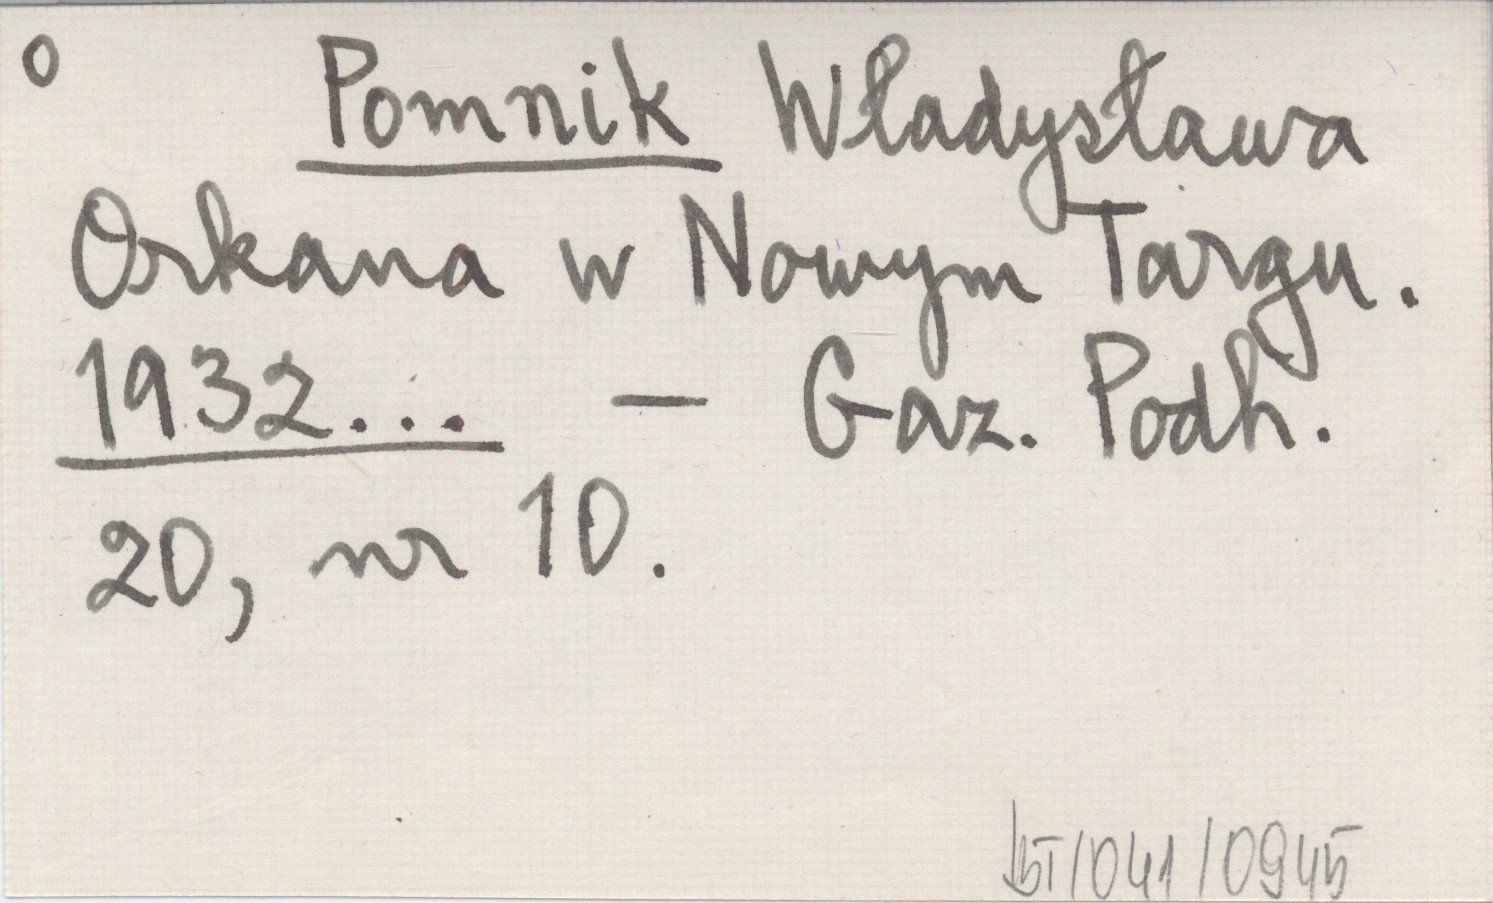 o Pomnik Władysława
Orkana w Nowym Targu.
1932... – Gaz. Podh.
20, nr 10.
/041/0945